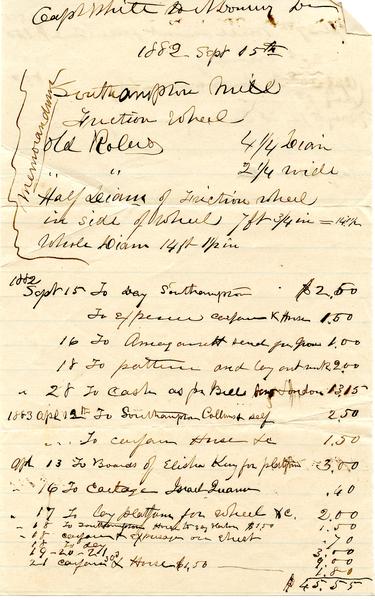 Capt White H Dr
1882 Sept 15th
Memorandum
Southampton Mill
Friction Wheel
Old Rolers 4 1/4 Diam
" " 2 1/4 wide
Half Diam of Friction wheel
in side of Wheel 7ft 3/4 in =
Whole Diam 14ft 1 1/2 in
1882
Sept 15 To day Southampton $2,50
To Expence carfare & Horse 1,50
16 To Amagansett 1,00
18 To pattern and lay out 2,00
" 28 To Cash as per Bill London 13,15
1883 Apl 12th To Southampton Collins & self 2 50
" " To carfare Horse &c 1,50
Apl 13 To Boards of Elisha King for platform 3,00
" 16 To Cartage Israel .40
" 17 To lay platform for wheel &c. 2,00
" 18 To Southampton Horse to Sag Harbor $1,50 1.50
" 18 carfare & Expences on .70
18 To day
19-20-21
21 carfare & Horse $1,50 1.80
$45.55